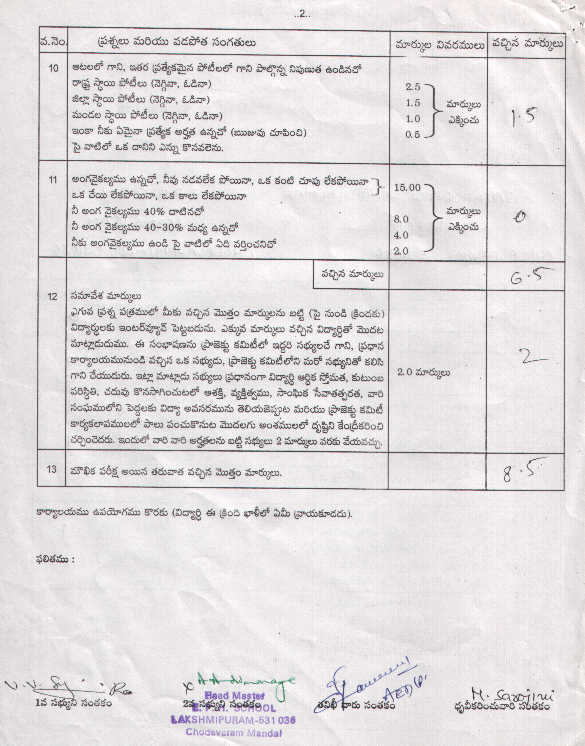 ..2..
వ.నెం. ప్రశ్నలు మరియు పడపోత సంగతులు మార్కుల వివరములు వచ్చిన మార్కులు
10 ఆటలలో గాని, ఇతర ప్రత్యేకమైన పోటీలలో గాని పాల్గొన్న నిపుణుత ఉండినచో
రాష్ట్ర స్థాయి పోటీలు (నెగ్గినా, ఓడినా) 2.5
జిల్లా స్థాయి పోటీలు (నెగ్గినా, ఓడినా) 1.5 మార్కులు
మండల స్థాయి పోటీలు (నెగ్గినా, ఓడినా) 1.0 ఎక్కించు 1.5
ఇంకా నీకు ఏమైనా ప్రత్యేక అర్హత ఉన్నచో (ఋజువు చూపించి) 0.5
పై వాటిలో ఒక దానిని ఎన్ను కొనవలెను.
11 అంగవైకల్యము ఉన్నచో, నీవు నడవలేక పోయినా, ఒక కంటి చూపు లేకపోయినా
ఒక చేయి లేకపోయినా, ఒక కాలు లేకపోయినా 15.00
నీ అంగ వైకల్యము 40% దాటినచో 8.0 మార్కులు
నీ అంగ వైకల్యము 40-30% మధ్య ఉన్నచో 4.0 ఎక్కించు 0
నీకు అంగవైకల్యము ఉండి పై వాటిలో ఏది వర్తించనిచో 2.0
వచ్చిన మార్కులు 6.5
12 సమావేశ మార్కులు
ఎగువ ప్రశ్న పత్రములో మీకు వచ్చిన మొత్తం మార్కులను బట్టి (పై నుండి క్రిందకు)
విద్యార్థులకు ఇంటర్వ్యూవ్ పెట్టబడును. ఎక్కువ మార్కులు వచ్చిన విద్యార్థితో మొదట
మాట్లాడుదుము. ఈ సంభాషణను ప్రాజెక్టు కమిటీలో ఇద్దరి సభ్యులచే గాని, ప్రధాన
కార్యాలయమునుండి వచ్చిన ఒక సభ్యుడు, ప్రాజెక్టు కమిటీలోని మరో సభ్యునితో కలిసి
గాని చేయుదురు. ఇట్లా మాట్లాడు సభ్యులు ప్రధానంగా విద్యార్థి ఆర్థిక స్తోమత, కుటుంబ 2.0 మార్కులు 2
పరిస్థితి, చదువు కొనసాగించుటలో ఆశక్తి, వ్యక్తిత్వము, సాంఘిక సేవాతత్పరత, వారి
సంఘములోని పెద్దలకు విద్యా అవసరమును తెలియజెప్పుట మరియు ప్రాజెక్టు కమిటీ
కార్యకలాపములలో పాలు పంచుకొనుట మొదలగు అంశములలో దృష్టిని కేంద్రీకరించి
చర్చించెదరు. ఇందులో వారి వారి అర్హతలను బట్టి సభ్యులు 2 మార్కులు వరకు వేయవచ్చు.
13 మౌఖిక పరీక్ష అయిన తరువాత వచ్చిన మొత్తం మార్కులు. 8.5
కార్యాలయము ఉపయోగము కొరకు (విద్యార్థి ఈ క్రింది ఖాళీలో ఏమీ వ్రాయకూడదు).
ఫలితము :
M. Sarojini
1వ సభ్యుని సంతకం 2వ సభ్యుని సంతకం తనిఖీ దారు సంతకం ధృవీకరించువారి సంతకం
Head Master
E. P. H. SCHOOL
LAKSHMIPURAM-531 036
Chodavaram Mandal